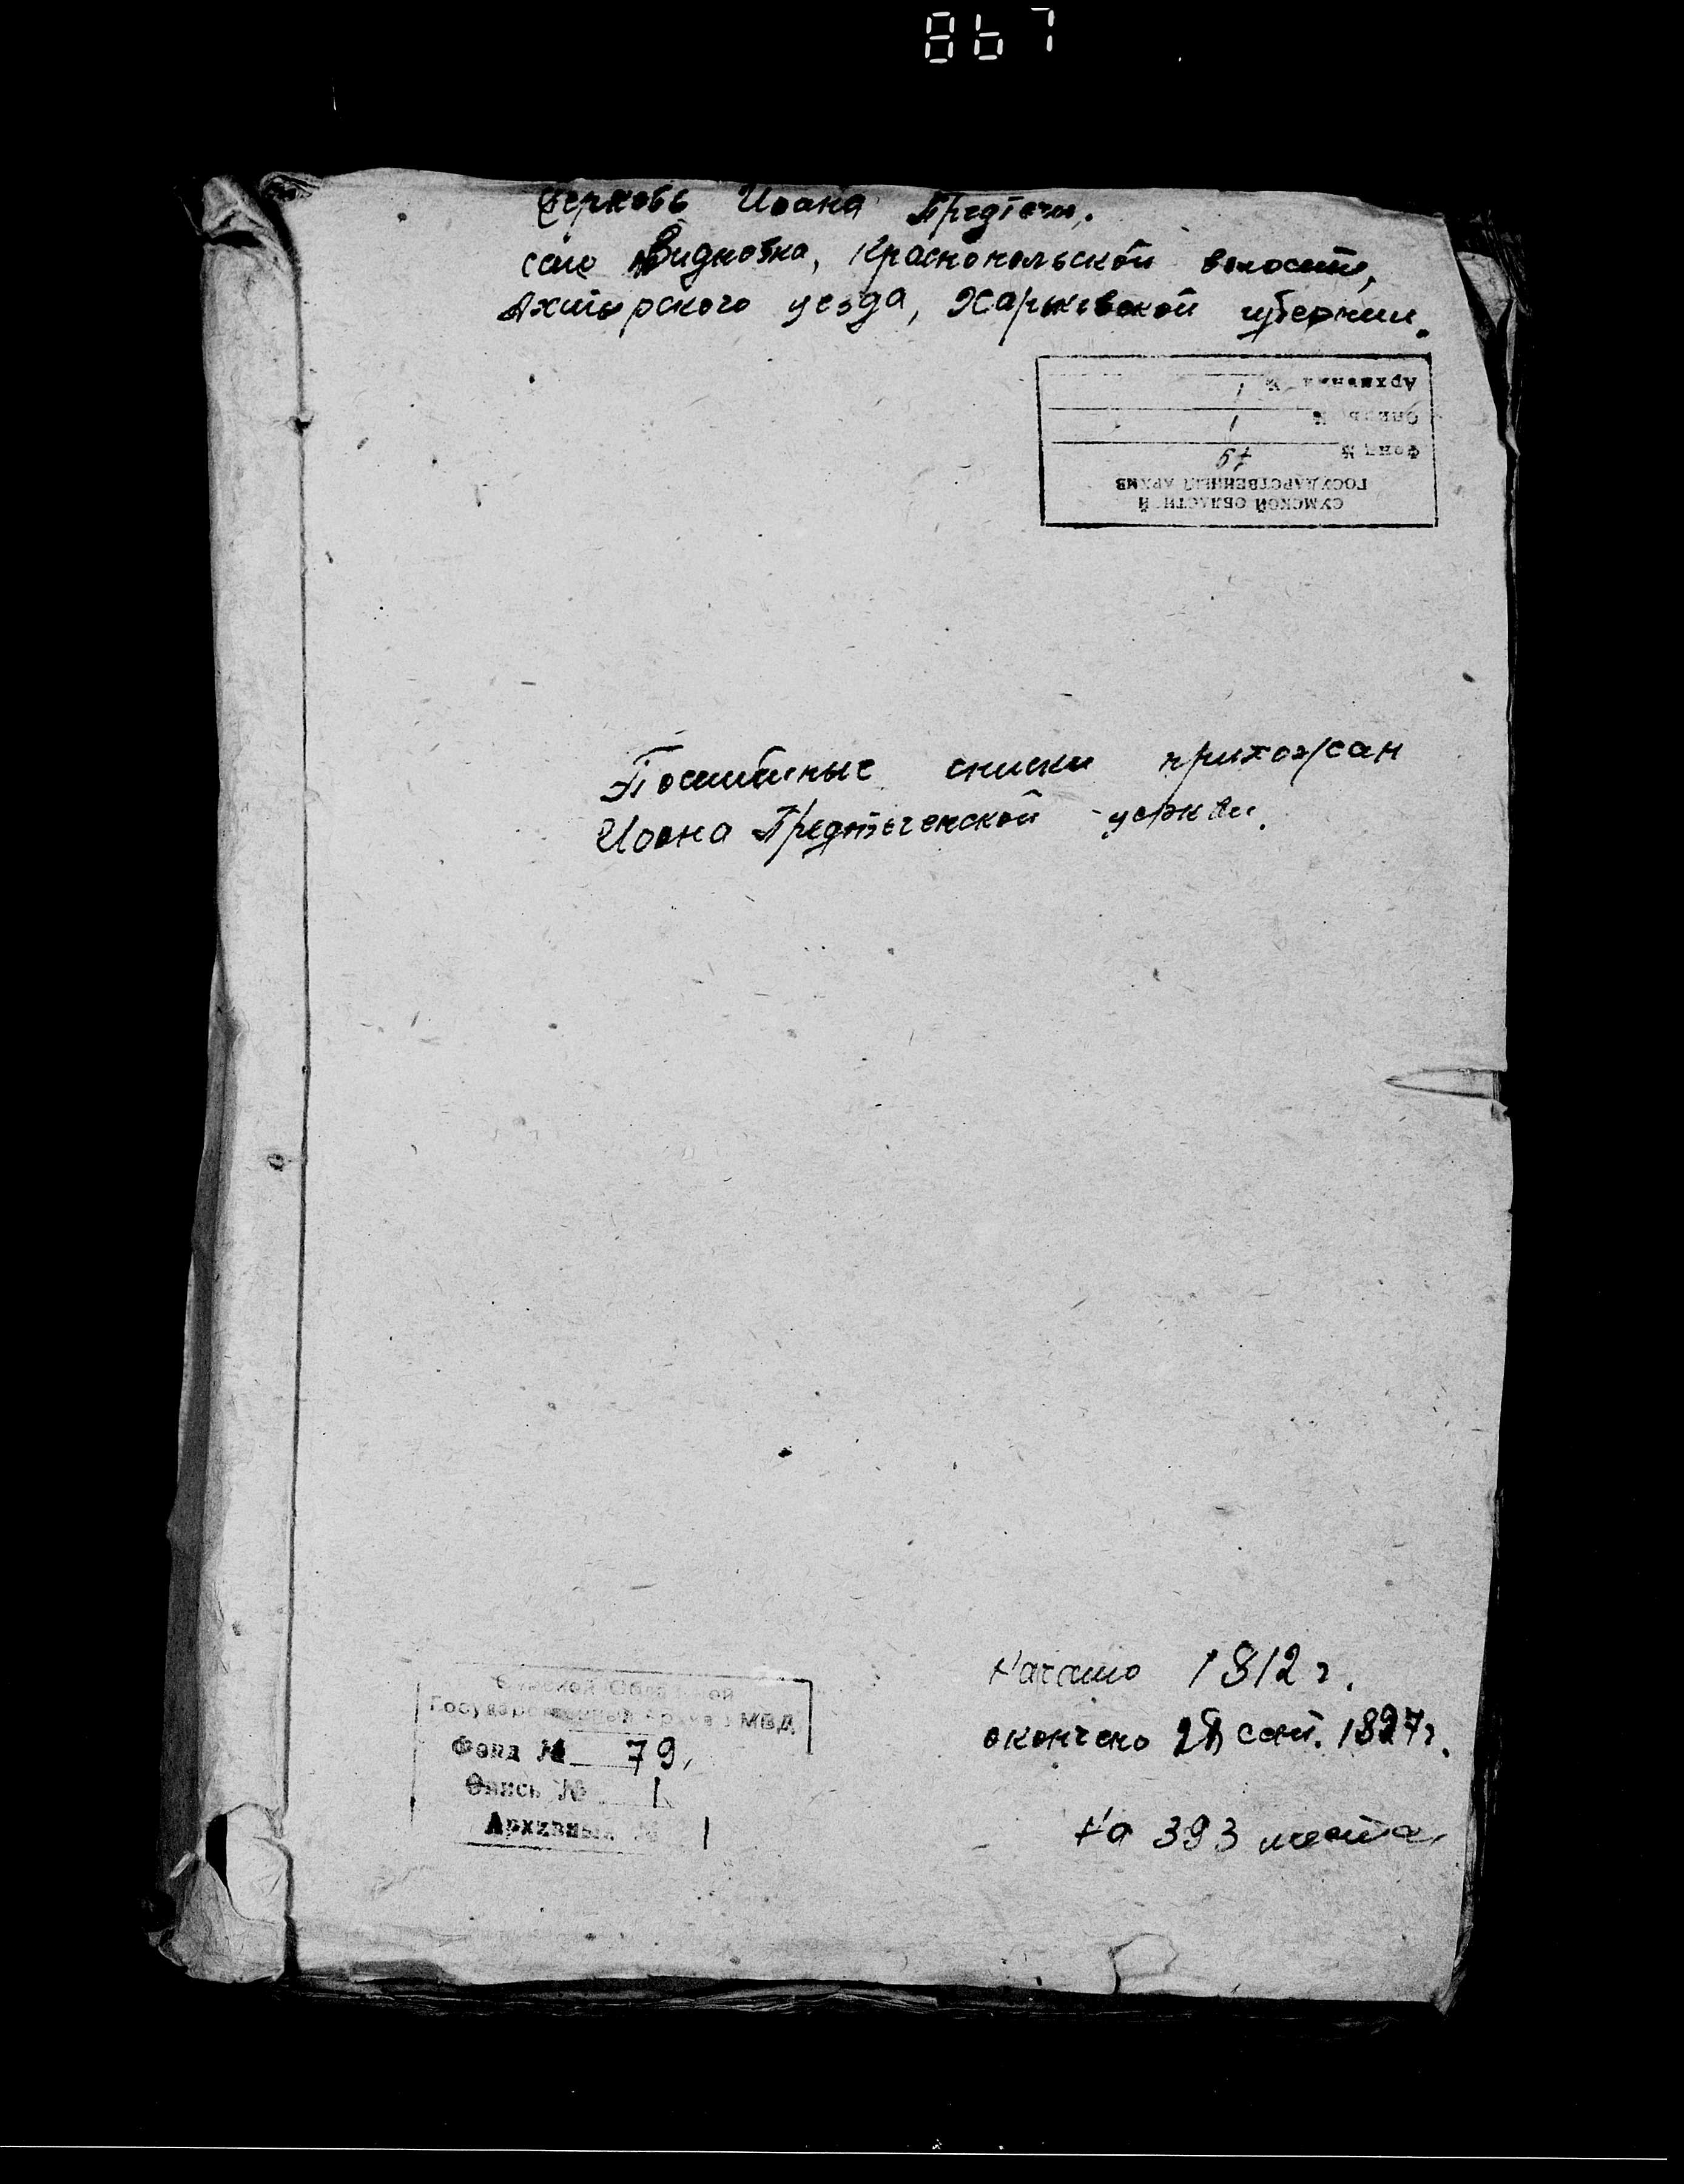 867
Церковь Иоана Предтечи.
село Видновка, Краснопольской волости,
Ахтырского уезда, Харьковской губернии.
Архивный № 1
Опись № 1
Фонд № 79
ГОСУДАРСТВЕННЫЙ АРХИВ
СУМСКОЙ ОБЛАСТНОЙ
списки прихожан
Иоана Предтеченской церкви.
Начато 1812 г.
окончено сент. 1827 г.
На 393 листах
Сумской Областной
Государственный Архив МВД
Фонд № 79,
Опись № 1
Архивный № 1